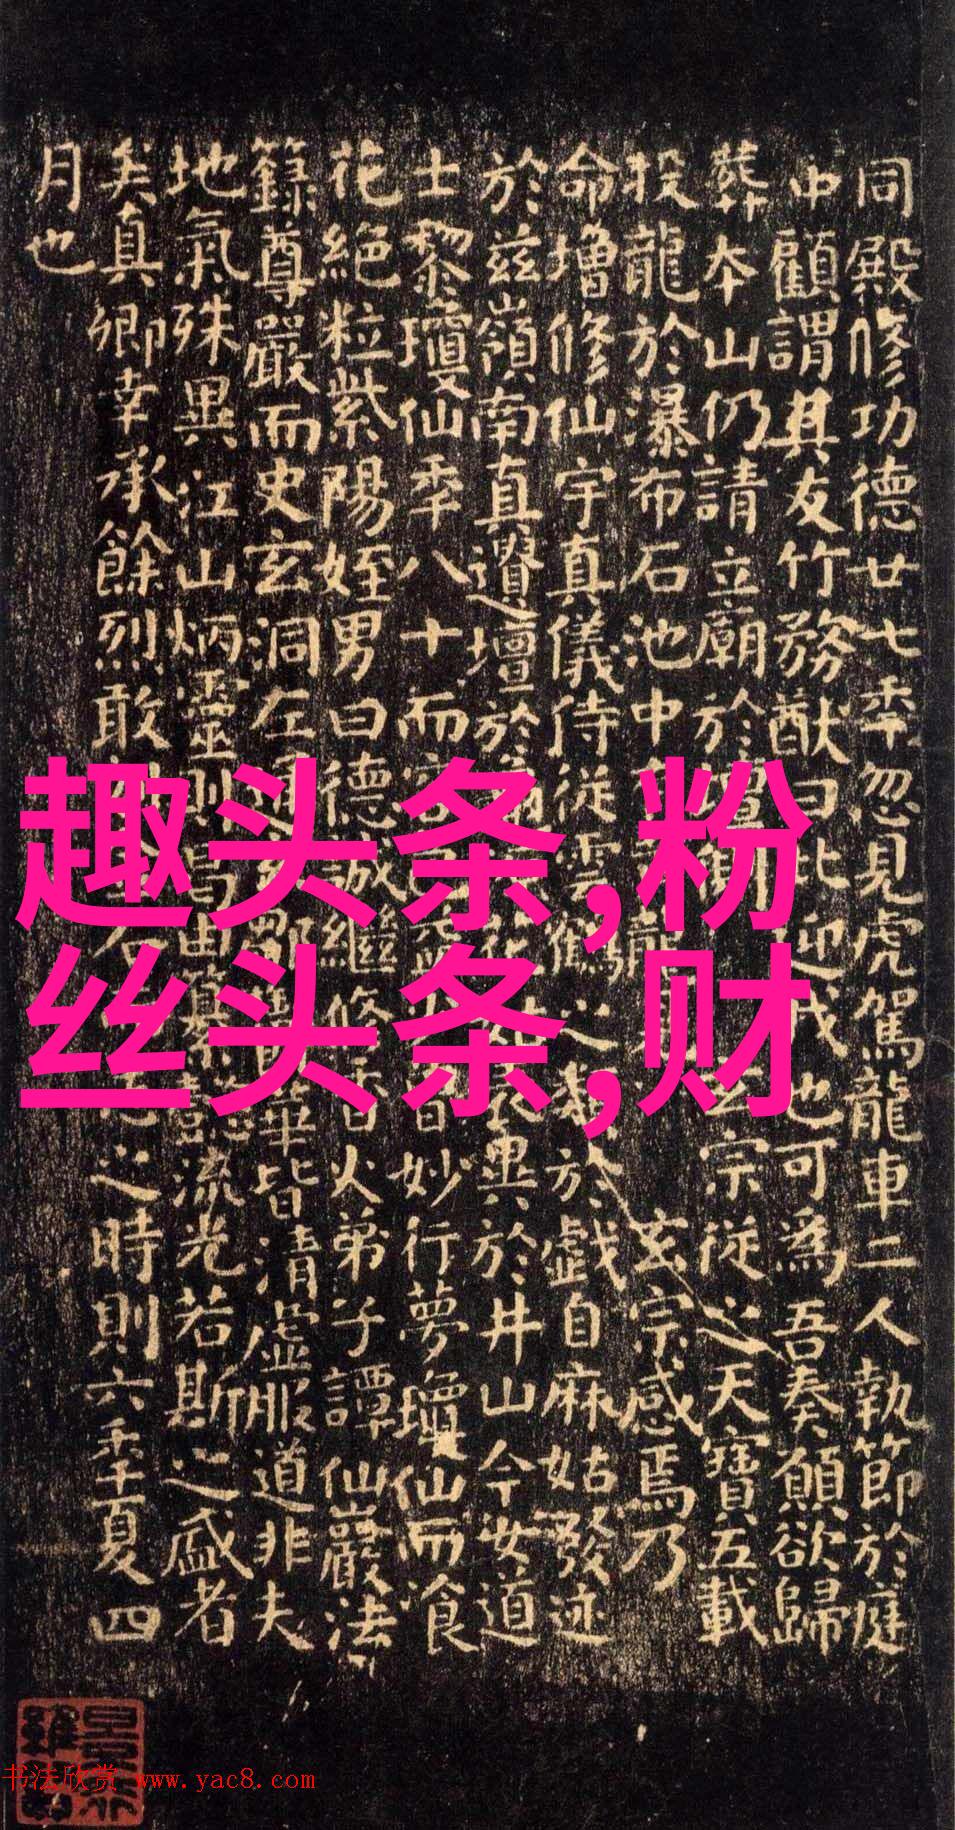 同殿修功德廿七年忽見虎駕龍車二人執節於庭
中顧謂其友竹務猷曰此迎我也可為吾奏願欲歸
葬本山仍請立廟於壇玄宗從之天寶五載
投龍於瀑布石池中龍玄宗感焉乃
命增修仙宇真儀侍從雲鶴之類於戲自麻姑發迹
於茲嶺南真遺壇於花表異於井山今女道
士黎瓊仙年八十而容曾妙行夢瓊仙而飡
花絕粒紫陽姪男曰德誠繼修香火弟子譚仙巖法
籙尊嚴而史玄洞左鄒華皆清虛服道非夫
地氣殊異江山炳靈則曷由纂懿流光若斯之盛者
矣真卿幸承餘烈敢石之時則六年夏四
月也
趣头条,粉
丝头条,财
书法欣赏 www.yac8.com